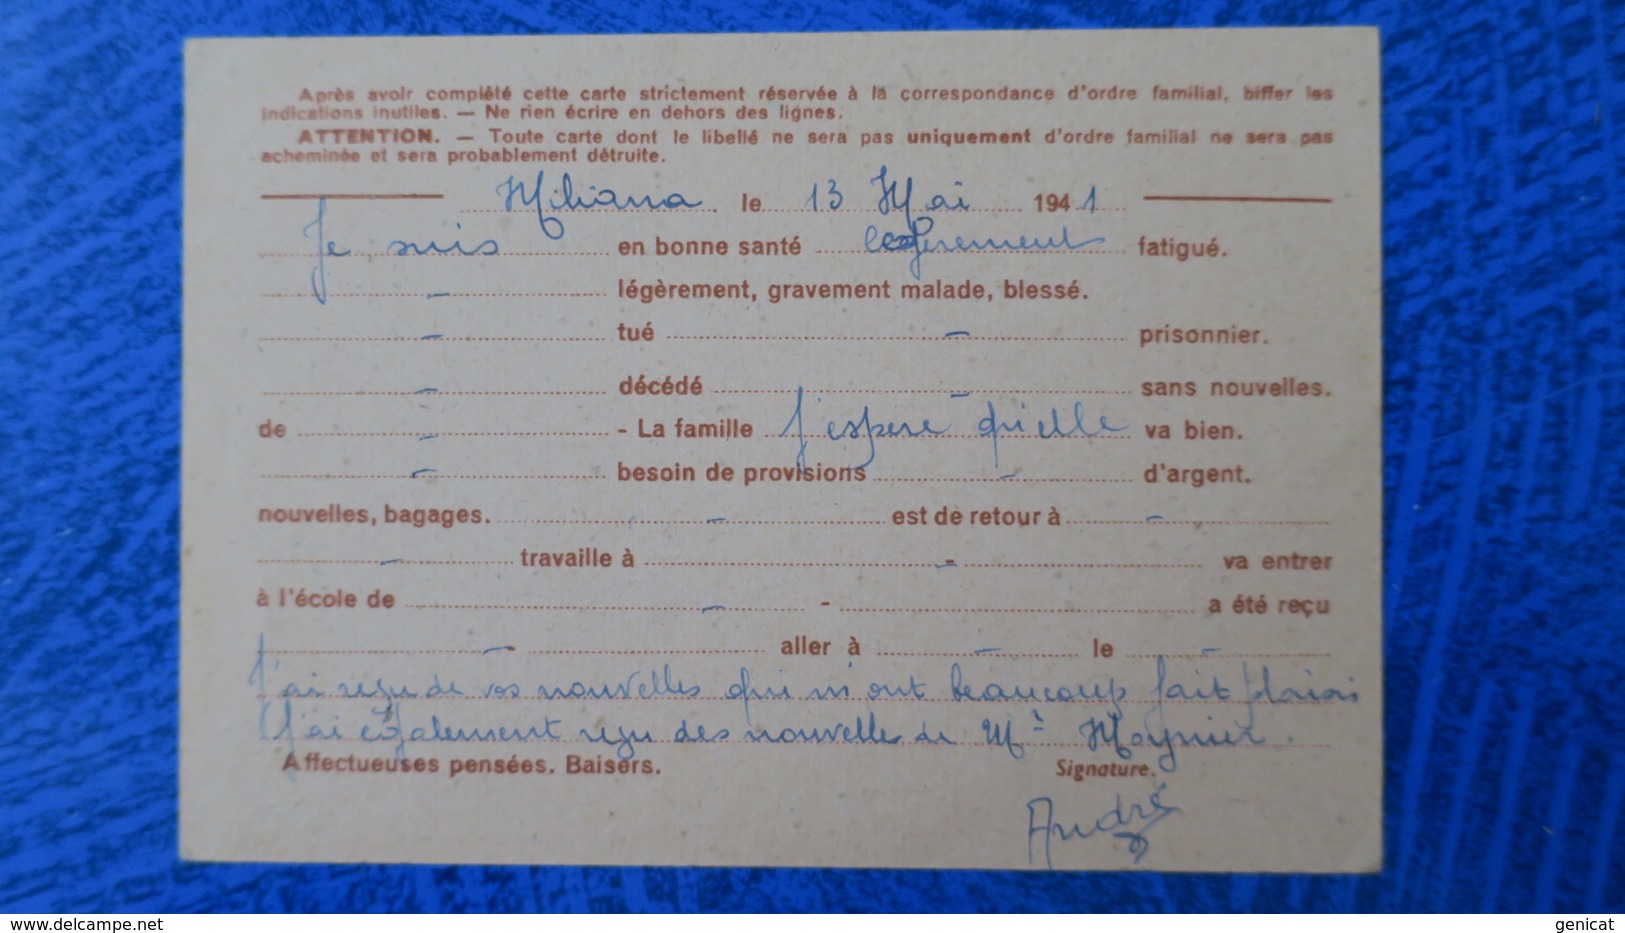 Après avoir complété cette carte strictement réservée à la correspondance d'ordre familial, biffer les
indications inutiles. — Ne rien écrire en dehors des lignes.
ATTENTION. — Toute carte dont le libellé ne sera pas uniquement d'ordre familial ne sera pas
acheminée et sera probablement détruite.
Miliana le 13 Mai 1941
Je suis en bonne santé legerement fatigué.
- légèrement, gravement malade, blessé.
- tué - prisonnier.
- décédé - sans nouvelles.
de - - La famille j'espere qu'elle va bien.
- besoin de provisions - d'argent.
nouvelles, bagages. - est de retour à -
- travaille à - va entrer
à l'école de - - a été reçu
- - aller à - le -
J'ai reçu de vos nouvelles qui m'ont beaucoup fait plaisir
J'ai egalement reçu des nouvelles de Mr Moynier.
Affectueuses pensées. Baisers. Signature.
André
www.delcampe.net genicat